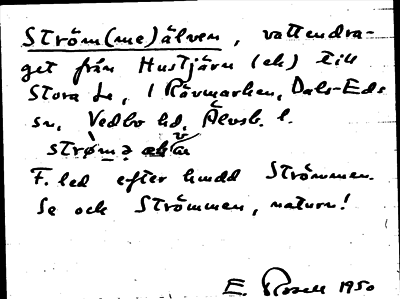 Ström(me)älven, vattendra-
get från Hustjärn (ek) till
Stora Le, i Rävmarken, Dals-Eds
sn, Vedbo hd, Älvsb. l.
F. led efter huvud Strömmen.
Se och Strömmen, naturn!
E. Rosell 1950